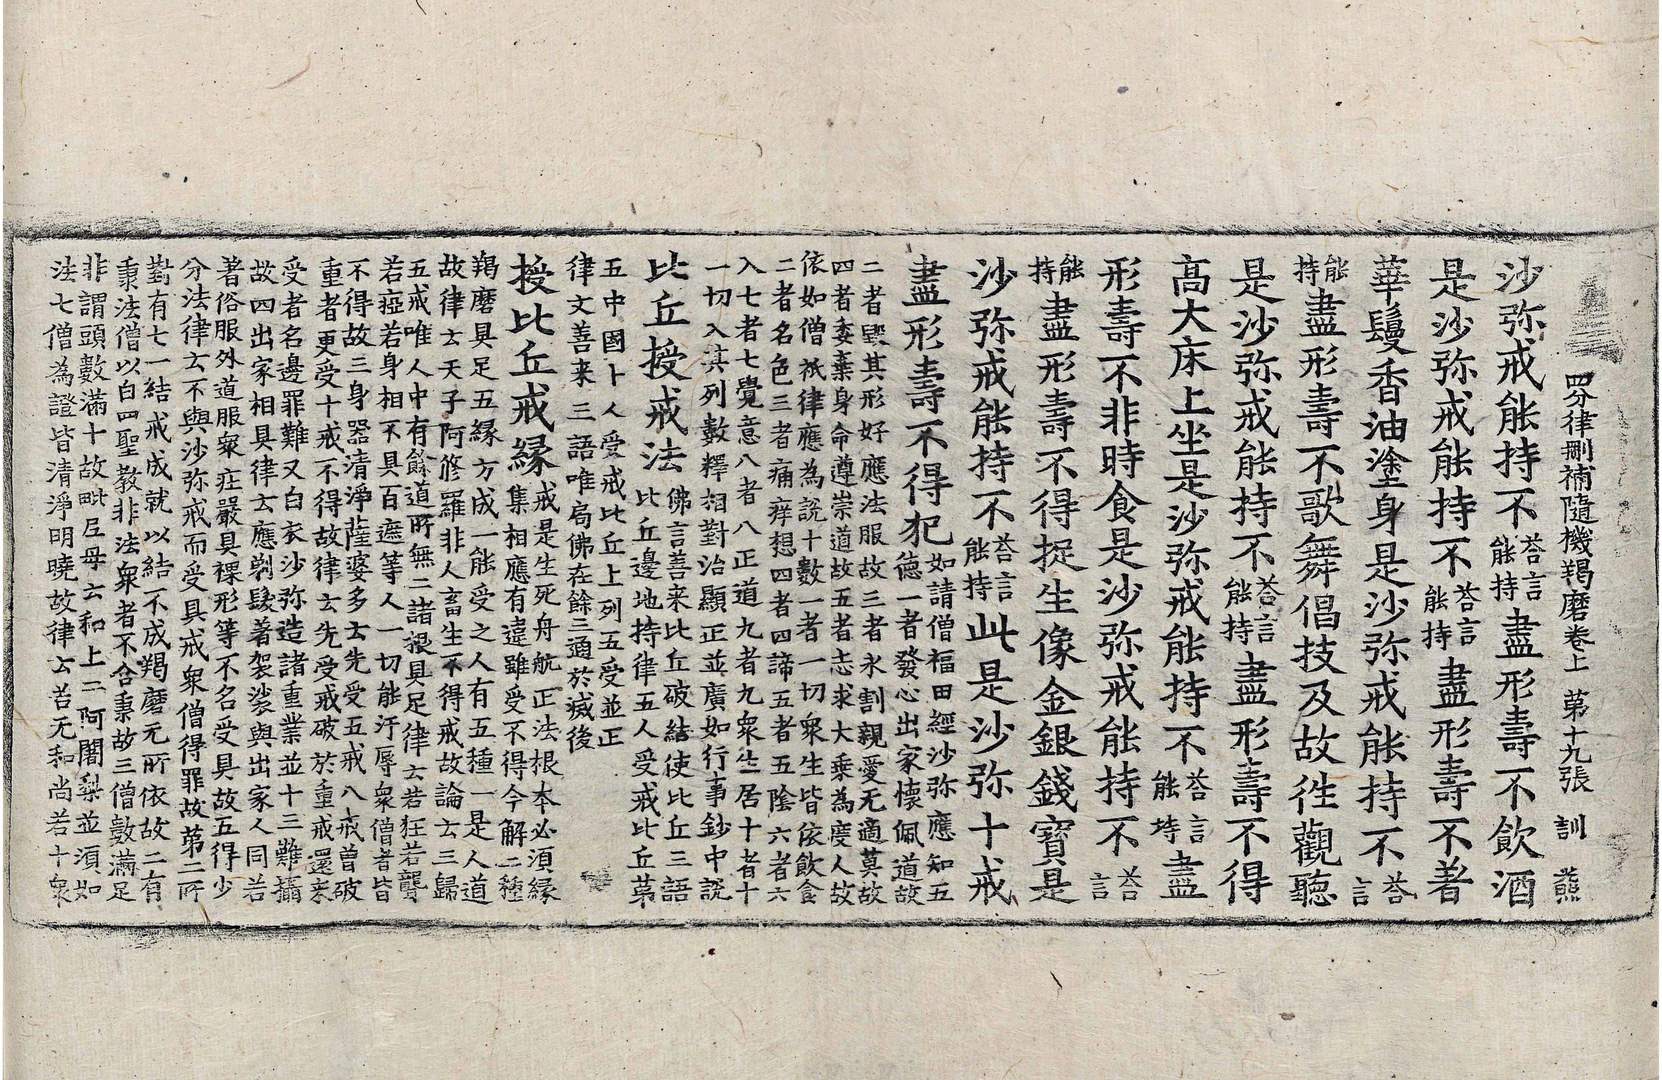 四分律刪補隨機羯磨卷上　第十九張　訓　熊
沙弥戒能持不荅言能持盡形壽不飲酒
是沙弥戒能持不荅言能持盡形壽不著
華鬘香油塗身是沙弥戒能持不荅言
能持盡形壽不歌舞倡技及故徃觀聽
是沙弥戒能持不荅言能持盡形壽不得
高大床上坐是沙弥戒能持不荅言能持盡
形壽不非時食是沙弥戒能持不荅言
能持盡形壽不得捉生像金銀錢寶是
沙弥戒能持不荅言能持此是沙弥十戒
盡形壽不得犯如請僧福田經沙弥應知五
德一者發心出家懷佩道故
二者毀其形好應法服故三者永割親愛无適莫故
四者委棄身命遵崇道故五者志求大乘為度人故
依如僧祇律應為說十數一者一切衆生皆依飲食
二者名色三者痛痒想四者四諦五者五陰六者六
入七者七覺意八者八正道九者九衆生居十者十
一切入其列數釋相對治顯正並廣如行事鈔中說
比丘授戒法佛言善来比丘破結使比丘三語
比丘邊地持律五人受戒比丘第
五中國十人受戒比丘上列五受並正
律文善来三語唯局佛在餘三通於滅後
授比丘戒縁戒是生死舟航正法根本必須縁
集相應有違雖受不得今解二種
羯磨具足五縁方成一能受之人有五種一是人道
故律云天子阿修羅非人畜生不得戒故論云三歸
五戒唯人中有餘道所無二諸根具足律云若狂若聾
若瘂若身相不具百遮等人一切能汙辱衆僧者皆
不得故三身器清淨薩婆多云先受五戒八戒曽破
重者更受十戒不得故律云先受戒破於重戒還来
受者名邊罪難又白衣沙弥造諸重業並十三難攝
故四出家相具律云應剃髮著袈裟與出家人同若
著俗服外道服衆庄嚴具裸形等不名受具故五得少
分法律云不與沙弥戒而受具戒衆僧得罪故第二所
對有七一結戒成就以結不成羯磨无所依故二有
秉法僧以白四聖教非法衆者不合秉故三僧數滿足
非謂頭數滿十故毗尼母云和上二阿闍梨並須如
法七僧為證皆清淨明曉故律云若无和尚若十衆